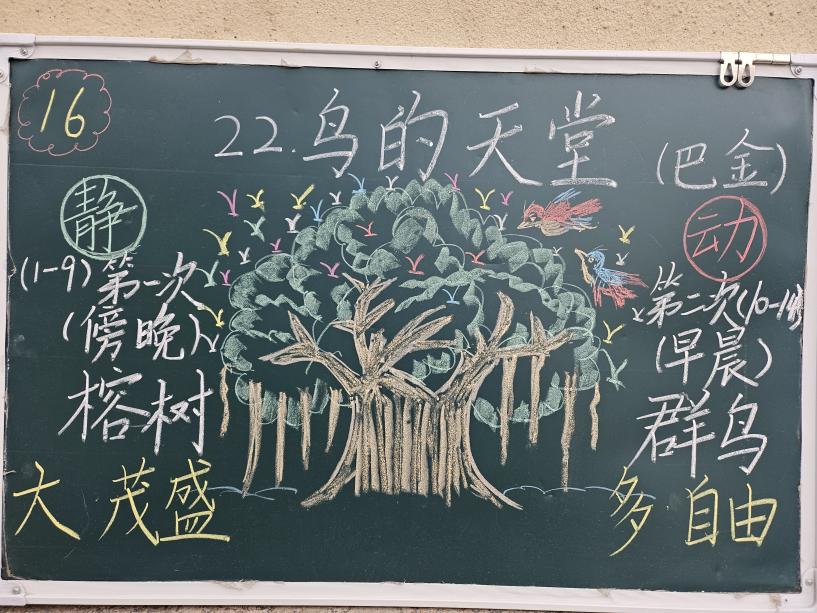 16
22.鸟的天堂 (巴金)
静
(1-9) 第一次
(傍晚)
榕树
大 茂盛
动
第二次(10-14)
(早晨)
群鸟
多 自由